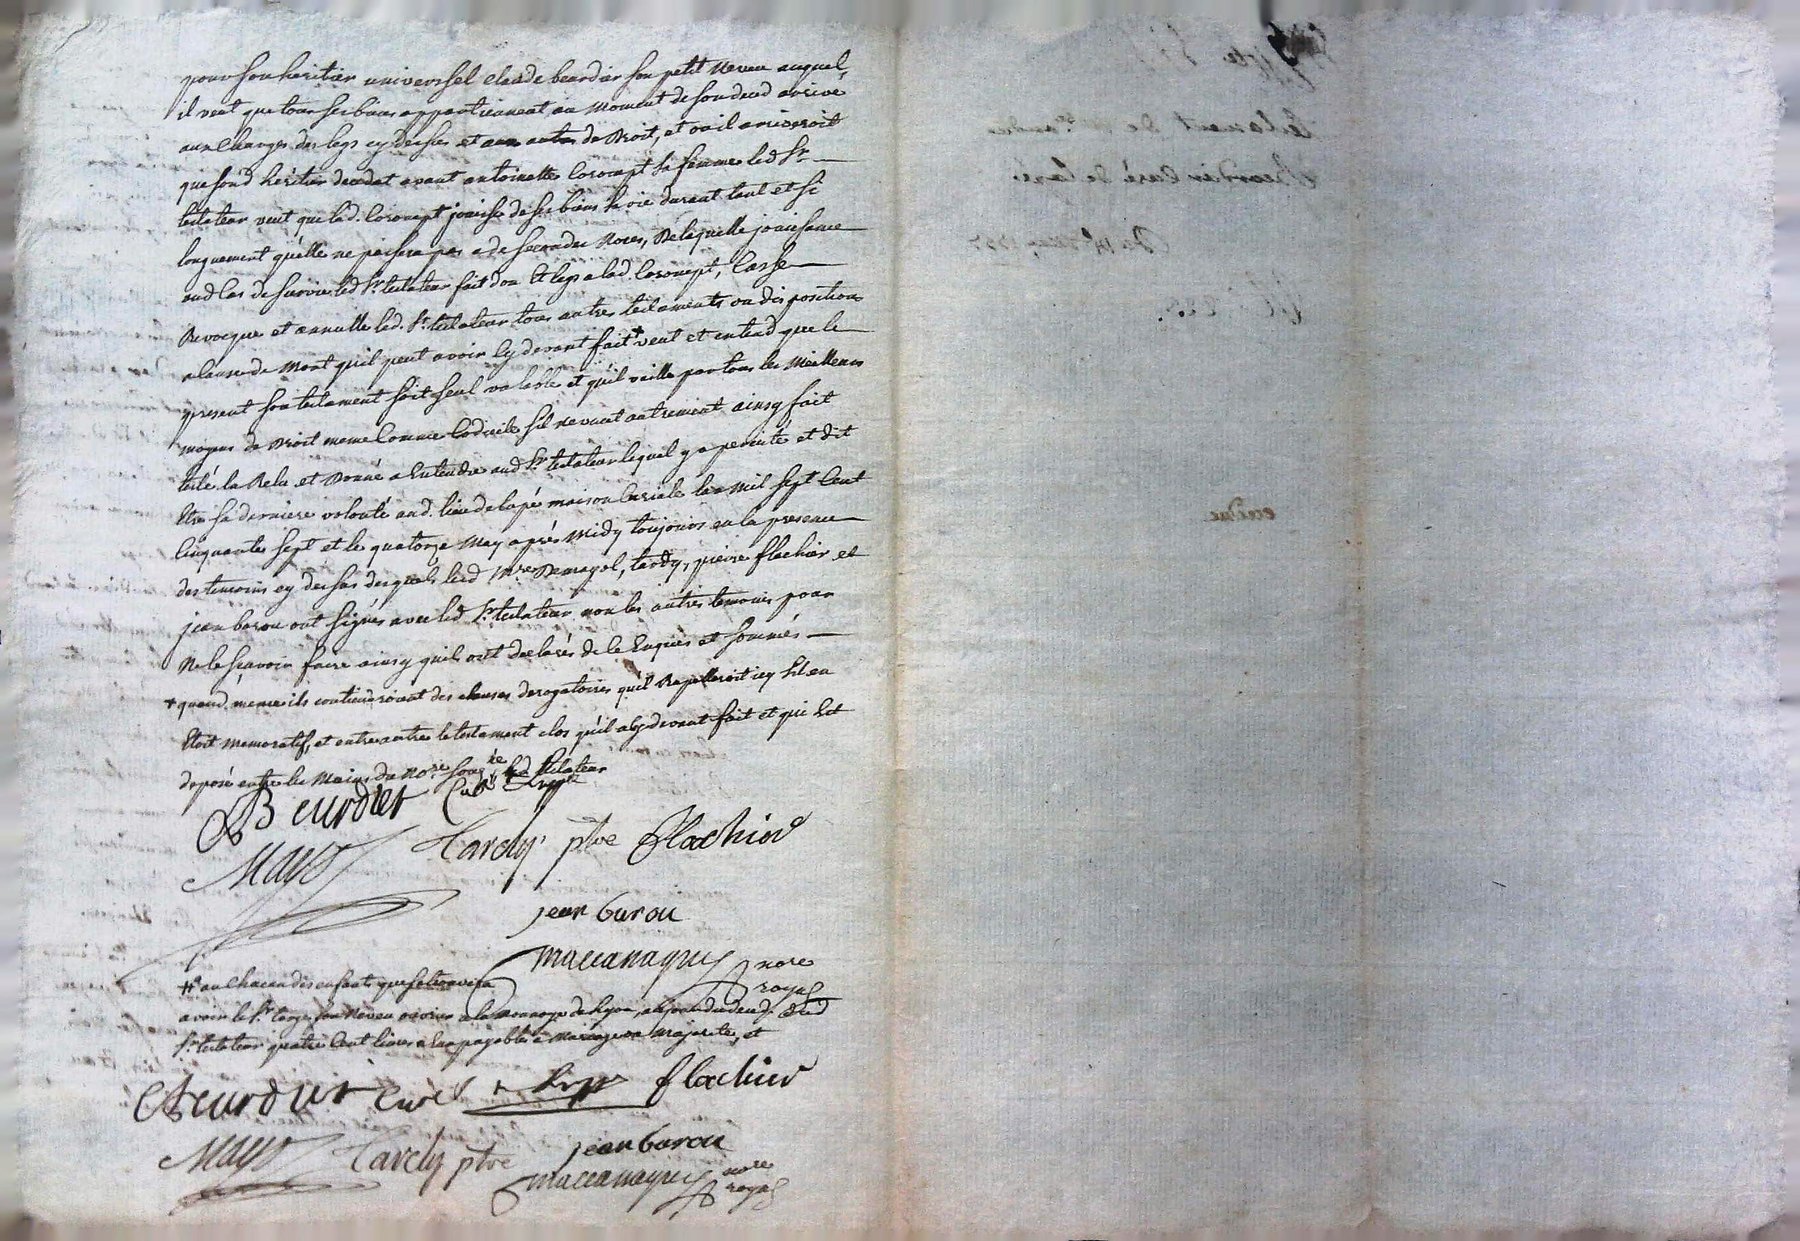 pour son heritier universel claude beurdier son petit Neveu auquel
il veut que tous ses biens appartiennent au Moment de son deced arrivé
aux Charges des legs cy dessus et aux autres de Droit, et ou il arriveroit
que sond heritier decedat avant antoinette Corompt sa femme led Sr
testateur veut que lad. Corompt jouisse de ses biens sa vie durant tant et si
longuement qu'elle ne passera pas a de secondes Noces, de laquelle jouissance
aud Cas de survie led Sr testateur fait don et legs a lad. Corompt, Casse
Revocque et annulle led. Sr testateur tous autres testaments ou dispositions
a Cause de Mort qu'il peut avoir Cy devant fait + veut et entend que le
present son testament soit seul valable et qu'il vaille par tous les Meilleurs
moyens de Droit meme Comme Codicile s'il ne vaut autrement ainsy fait
testé la Relu et Donné a Entendre aud Sr testateur lequel y a percisté et dit
Etre sa derniere volonté aud. lieu de lapé maison Curiale l'an Mil sept Cent
Cinquante sept et le quatorze May après Midy toujours en la presence
des temoins cy dessus desquels led Mre tardy, pierre flachier et
jean barou ont signés avec led Sr testateur non les autres temoins pour
Ne le sçavoir faire ainsy quils ont declarés de ce Enquis et sommés
+ quand meme ils contiendroient des clauses derogatoires qu'il Rapelleroit icy s'il en
Etoit memoratif, et entre autre le testament clos qu'il a Cy devant fait et qui Est
deposé entre les Mains du Nore sousné led testateur
Beurdier Curé
Tardy ptre flachier
jean barou
maccanaguy nore
royal
++ au Chacun des enfants que se trouvera
avoir le Sr son Neveu a la monnoye de lyon, au jour du deced dud
Sr testateur quatre Cent livres a Eux payables a Mariage ou Majorité, et
Beurdier Curé flachier
Tardy ptre jean barou
maccanaguy nore
royal